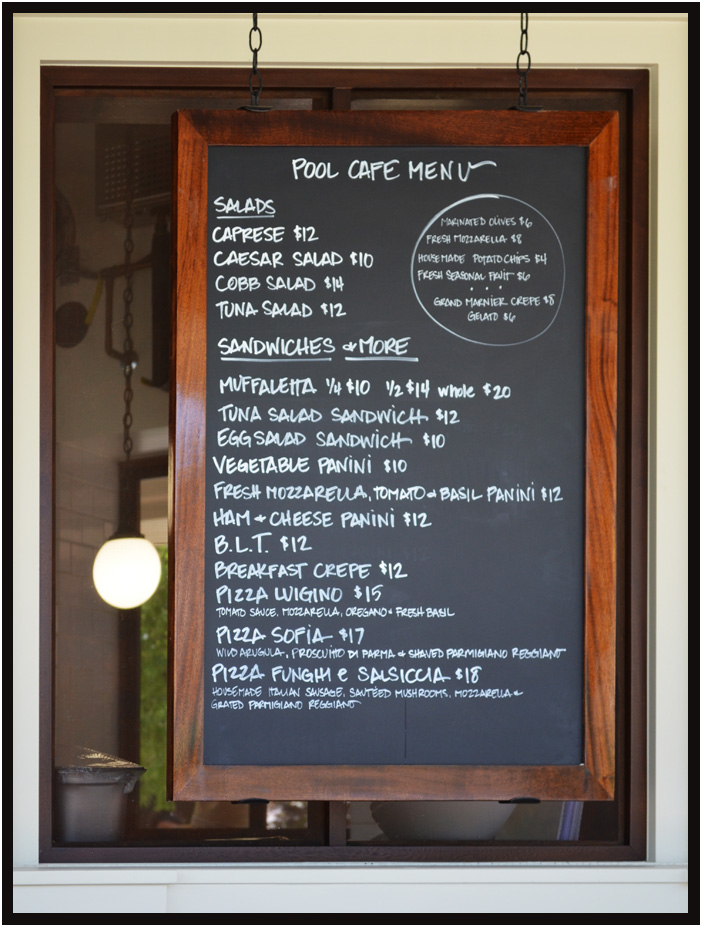 POOL CAFE MENU
SALADS
CAPRESE $12
CAESAR SALAD $10
COBB SALAD $14
TUNA SALAD $12
MARINATED OLIVES $6
FRESH MOZZARELLA $8
HOUSEMADE POTATO CHIPS $4
FRESH SEASONAL FRUIT $6
GRAND MARNIER CREPE $8
GELATO $6
SANDWICHES & MORE
MUFFALETTA 1/4 $10 1/2 $14 whole $20
TUNA SALAD SANDWICH $12
EGG SALAD SANDWICH $10
VEGETABLE PANINI $10
FRESH MOZZARELLA, TOMATO & BASIL PANINI $12
HAM & CHEESE PANINI $12
B.L.T. $12
BREAKFAST CREPE $12
PIZZA LUIGINO $15
TOMATO SAUCE, MOZZARELLA, OREGANO & FRESH BASIL
PIZZA SOFIA $17
WILD ARUGULA, PROSCUITO DI PARMA & SHAVED PARMIGIANO REGGIANO
PIZZA FUNGHI e SALSICCIA $18
HOUSEMADE ITALIAN SAUSAGE, SAUTÉED MUSHROOMS, MOZZARELLA &
GRATED PARMIGIANO REGGIANO